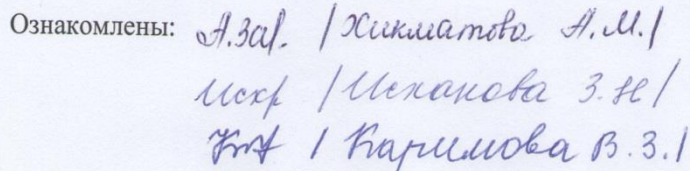 Ознакомлены: А.Заг. / Хикматова А.М. /
Исхр / Исханова З.Н /
/ Каримова В.З. /